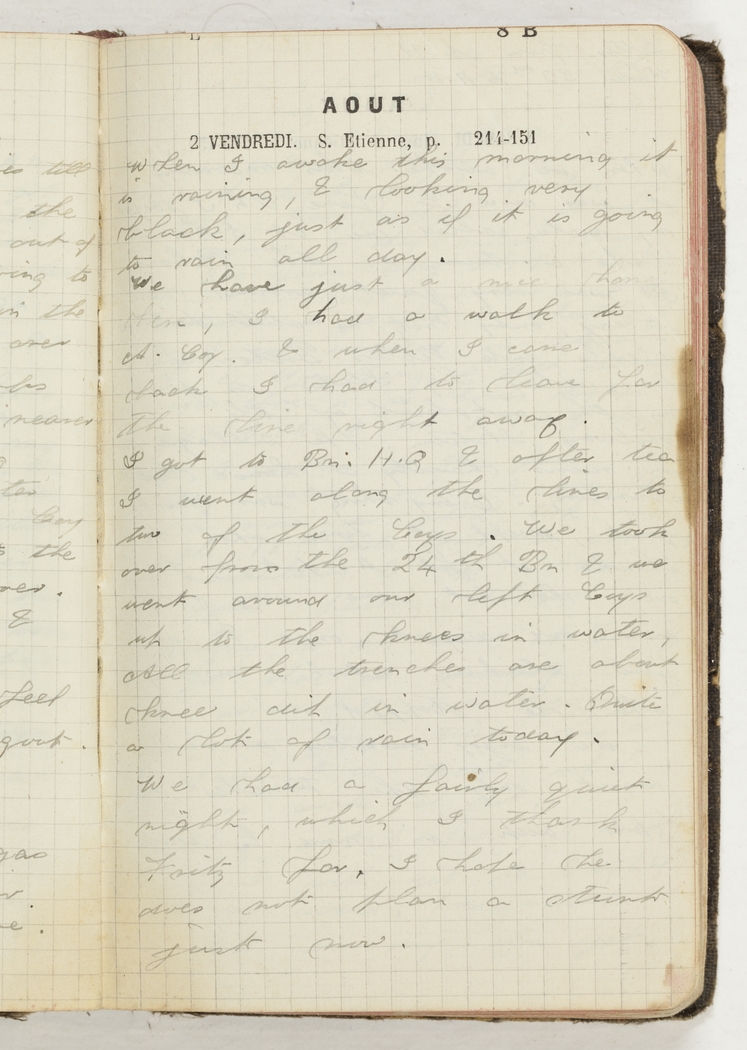 8 B
AOUT
2 VENDREDI. S. Etienne, p. 214-151
When I awoke this morning it
is raining, & looking very
black, just as if it is going
to rain all day.
We have just a nice home
here, I had a walk to
A. Coy. & when I came
back I had to leave for
the line right away.
I got to Bn. H.Q & after tea
I went along the lines to
two of the Coys. We took
over from the 24th Bn & we
went around our left Coys
up to the knees in water,
All the trenches are about
knee dit in water. Quite
a lot of rain today.
We had a fairly quiet
night, which I thank
Fritz for, I hope he
does not plan a stunt
just now.
is till
the
out of
ing to
in the
over
nearer
Coy
the
&
feel
gas